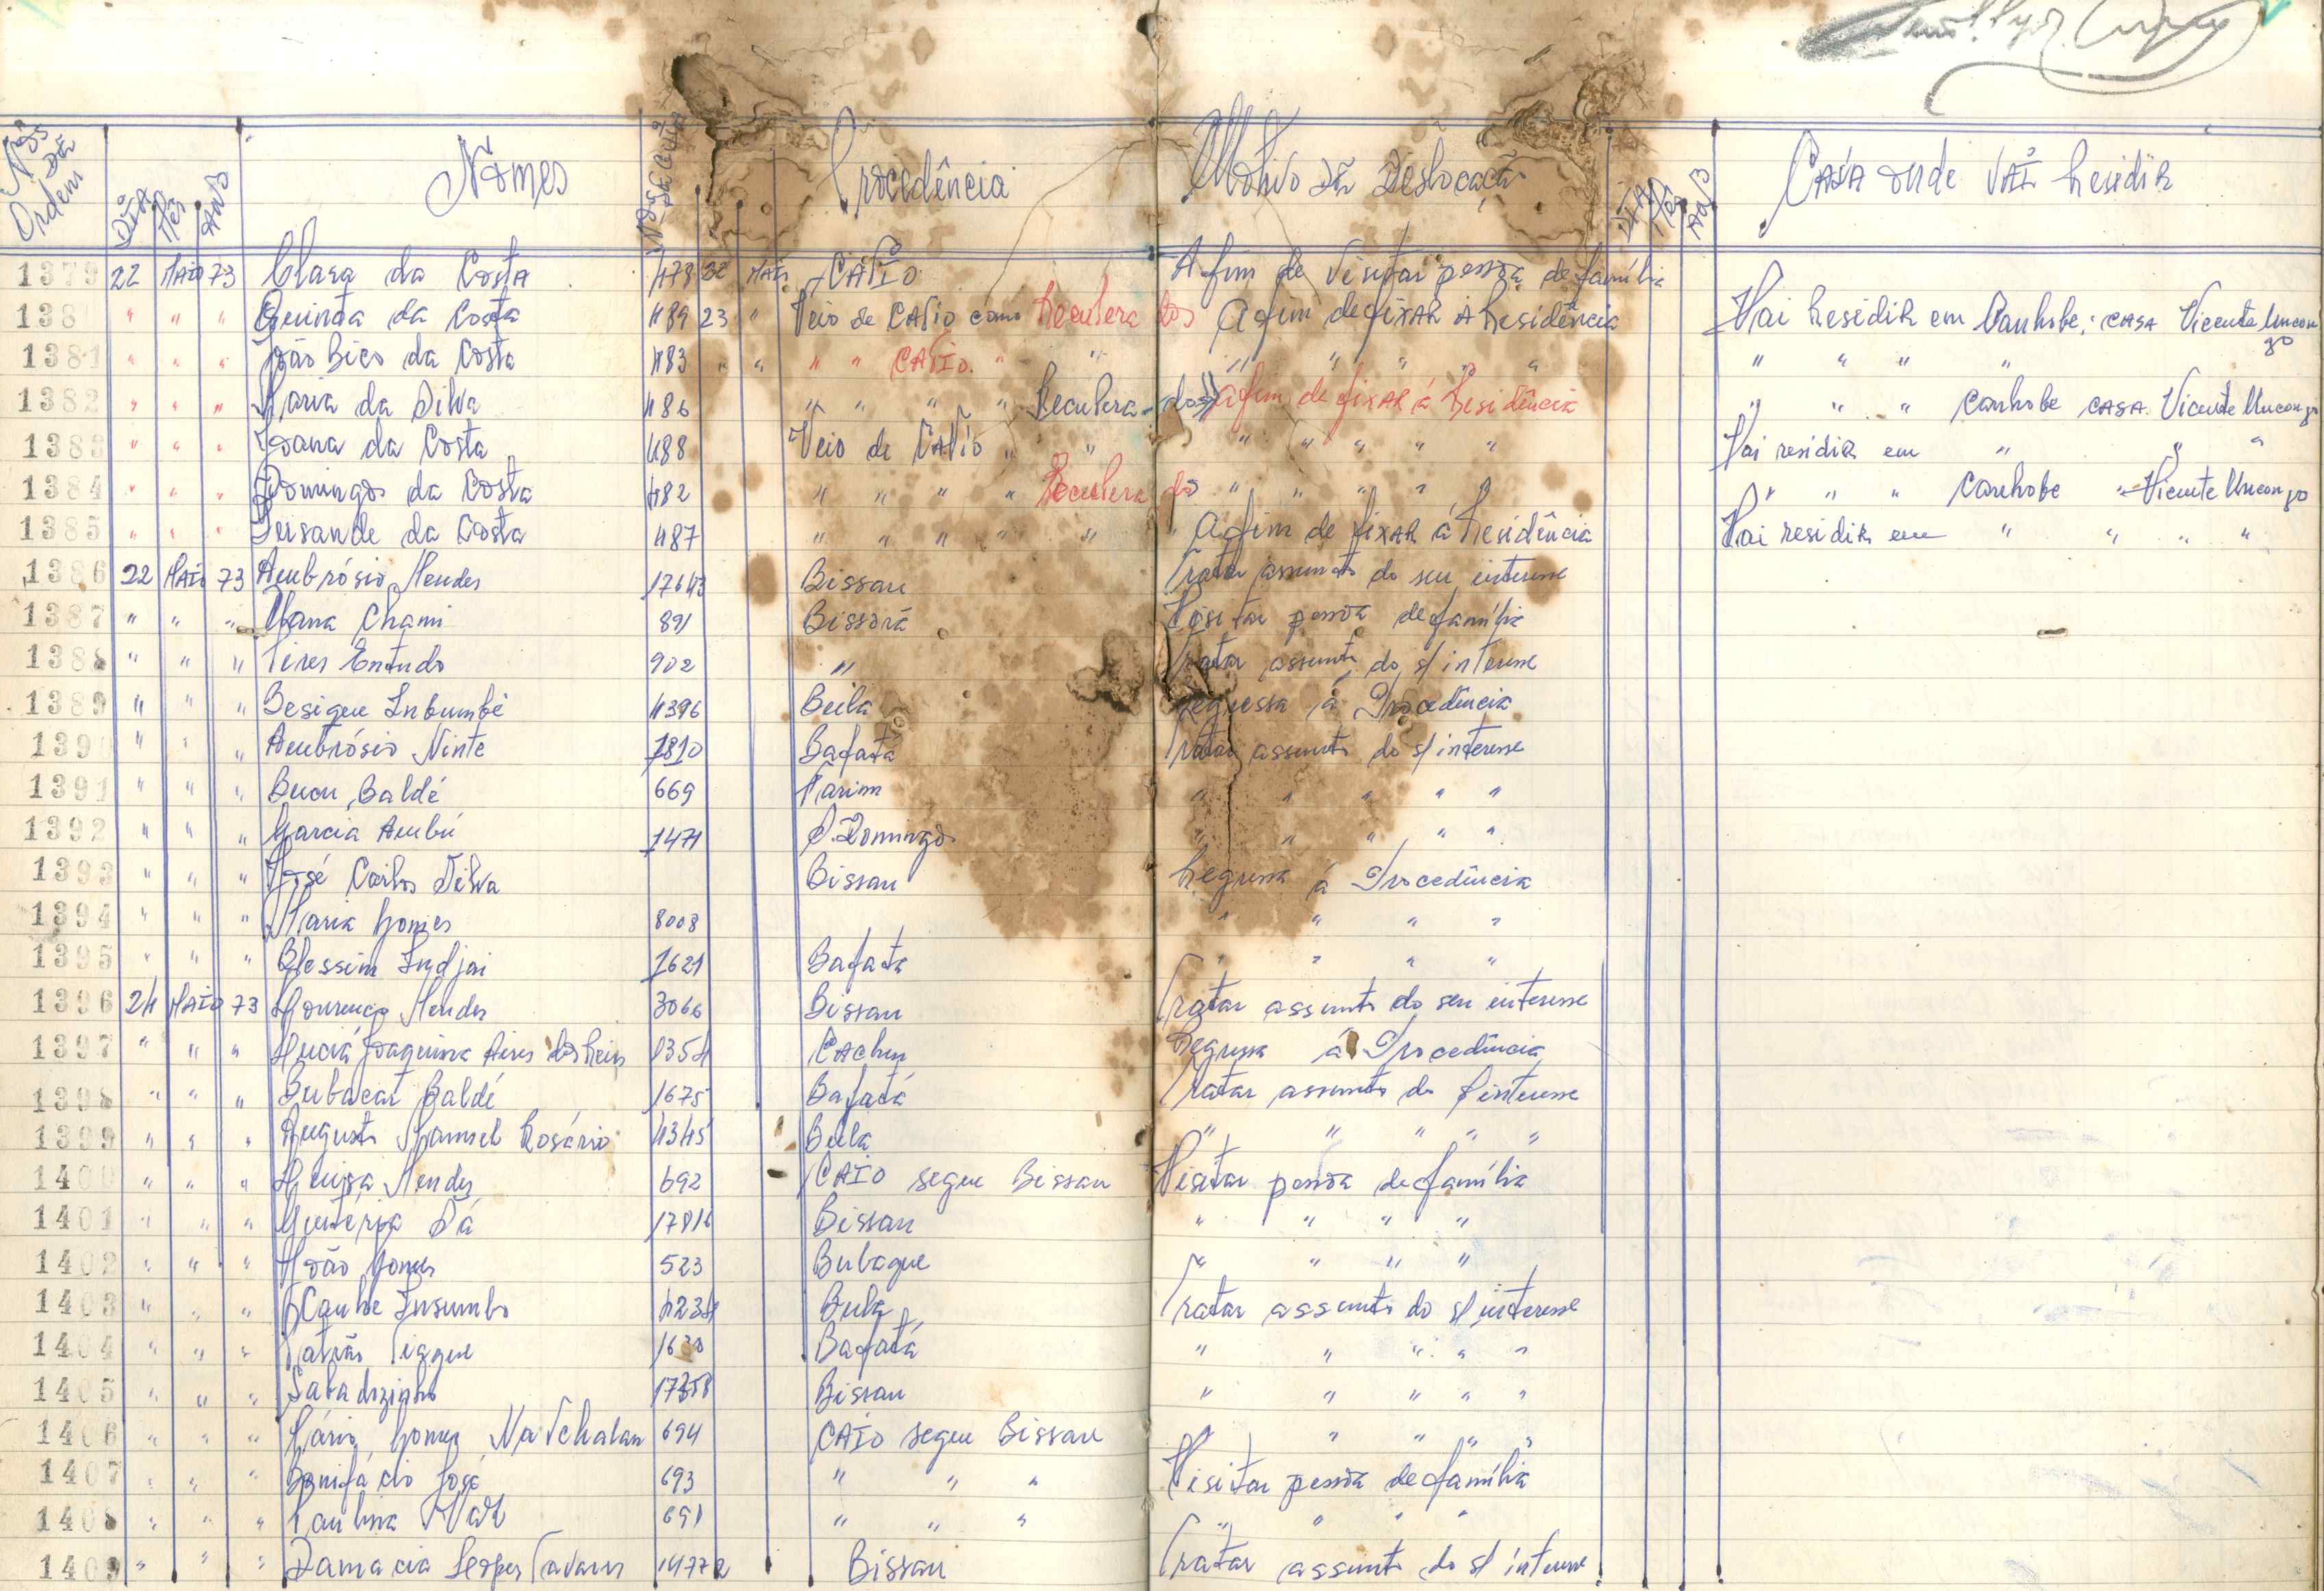 Nºs de Ordem Dia Mês Ano Nomes Procedência Motivo da Deslocação Dia Mês Casa onde vai Residir
1379 22 Maio 73 Clara da Costa 478 22 Maio Catió Afim de Visitar pessoa de família
138 " " " da Costa 489 23 " Veio de Catió como Recuperados Afim de fixar a Residência Vai Residir em Canhobe, casa Vicente Uncongo
1381 " " " João Bico da Costa 483 " " " " Catió " " " " " " " " " " "
1382 " " " Maria da Silva 486 " " " " Recuperados Afim de fixar á Residência " " " Canhobe casa Vicente Uncongo
1383 " " " Joana da Costa 488 Veio de Catió " " " " " " " Vai residir em " " "
1384 " " " Domingos da Costa 482 " " " " Recuperado " " " " " " " " Canhobe " Vicente Uncongo
1385 " " " da Costa 487 " " " " " " Afim de fixar á Residência Vai residir em " " " "
1386 22 Maio 73 Ambrósio Mendes 17643 Bissau Tratar assunto do seu interesse
1387 " " " Chami 891 Bissorã Visitar pessoa de família
1388 " " " 902 " Tratar assunto do s/ interesse
1389 " " " Besigue Inbumbé 4396 Bula Regressa á Procedência
139 " " " Ambrósio Ninte 1810 Bafatá Tratar assunto do s/ interesse
1391 " " " Baldé 669 Farim " " " " "
1392 " " " Garcia Ambú 1471 S. Domingos " " " " "
1393 " " " José Carlos Silva Bissau Regressa á Procedência
1394 " " " Maria Gomes 8008 " " " "
1395 " " " Indjai 1621 Bafatá " " " "
1396 24 Maio 73 Lourenço Mendes 3066 Bissau Tratar assunto do seu interesse
1397 " " " Lucia Joaquina Aires dos Reis 1354 Cacheu Regressa á Procedência
1398 " " " Bubacar Baldé 1675 Bafatá Tratar assunto do s/ interesse
1399 " " " Augusto Samuel Rosário 4345 Bula " " " " "
1400 " " " Luisa Mendes 692 Caió segue Bissau Visitar pessoa de família
1401 " " " Sá 17816 Bissau " " " "
1402 " " " João Gomes 523 Bubaque " " " "
1403 " " " Insumbo 4234 Bula Tratar assunto do s/ interesse
1404 " " " Bafatá " " " " "
1405 " " " Sabadozinho 17358 Bissau " " " " "
1406 " " " Mário Gomes 694 Caió segue Bissau " " " " "
1407 " " " Bonifácio José 693 " " " Visitar pessoa de família
1408 " " " Paulina 691 " " " " " " "
1409 " " " Damacia Lopes Tavares 14772 Bissau Tratar assunto do s/ interesse